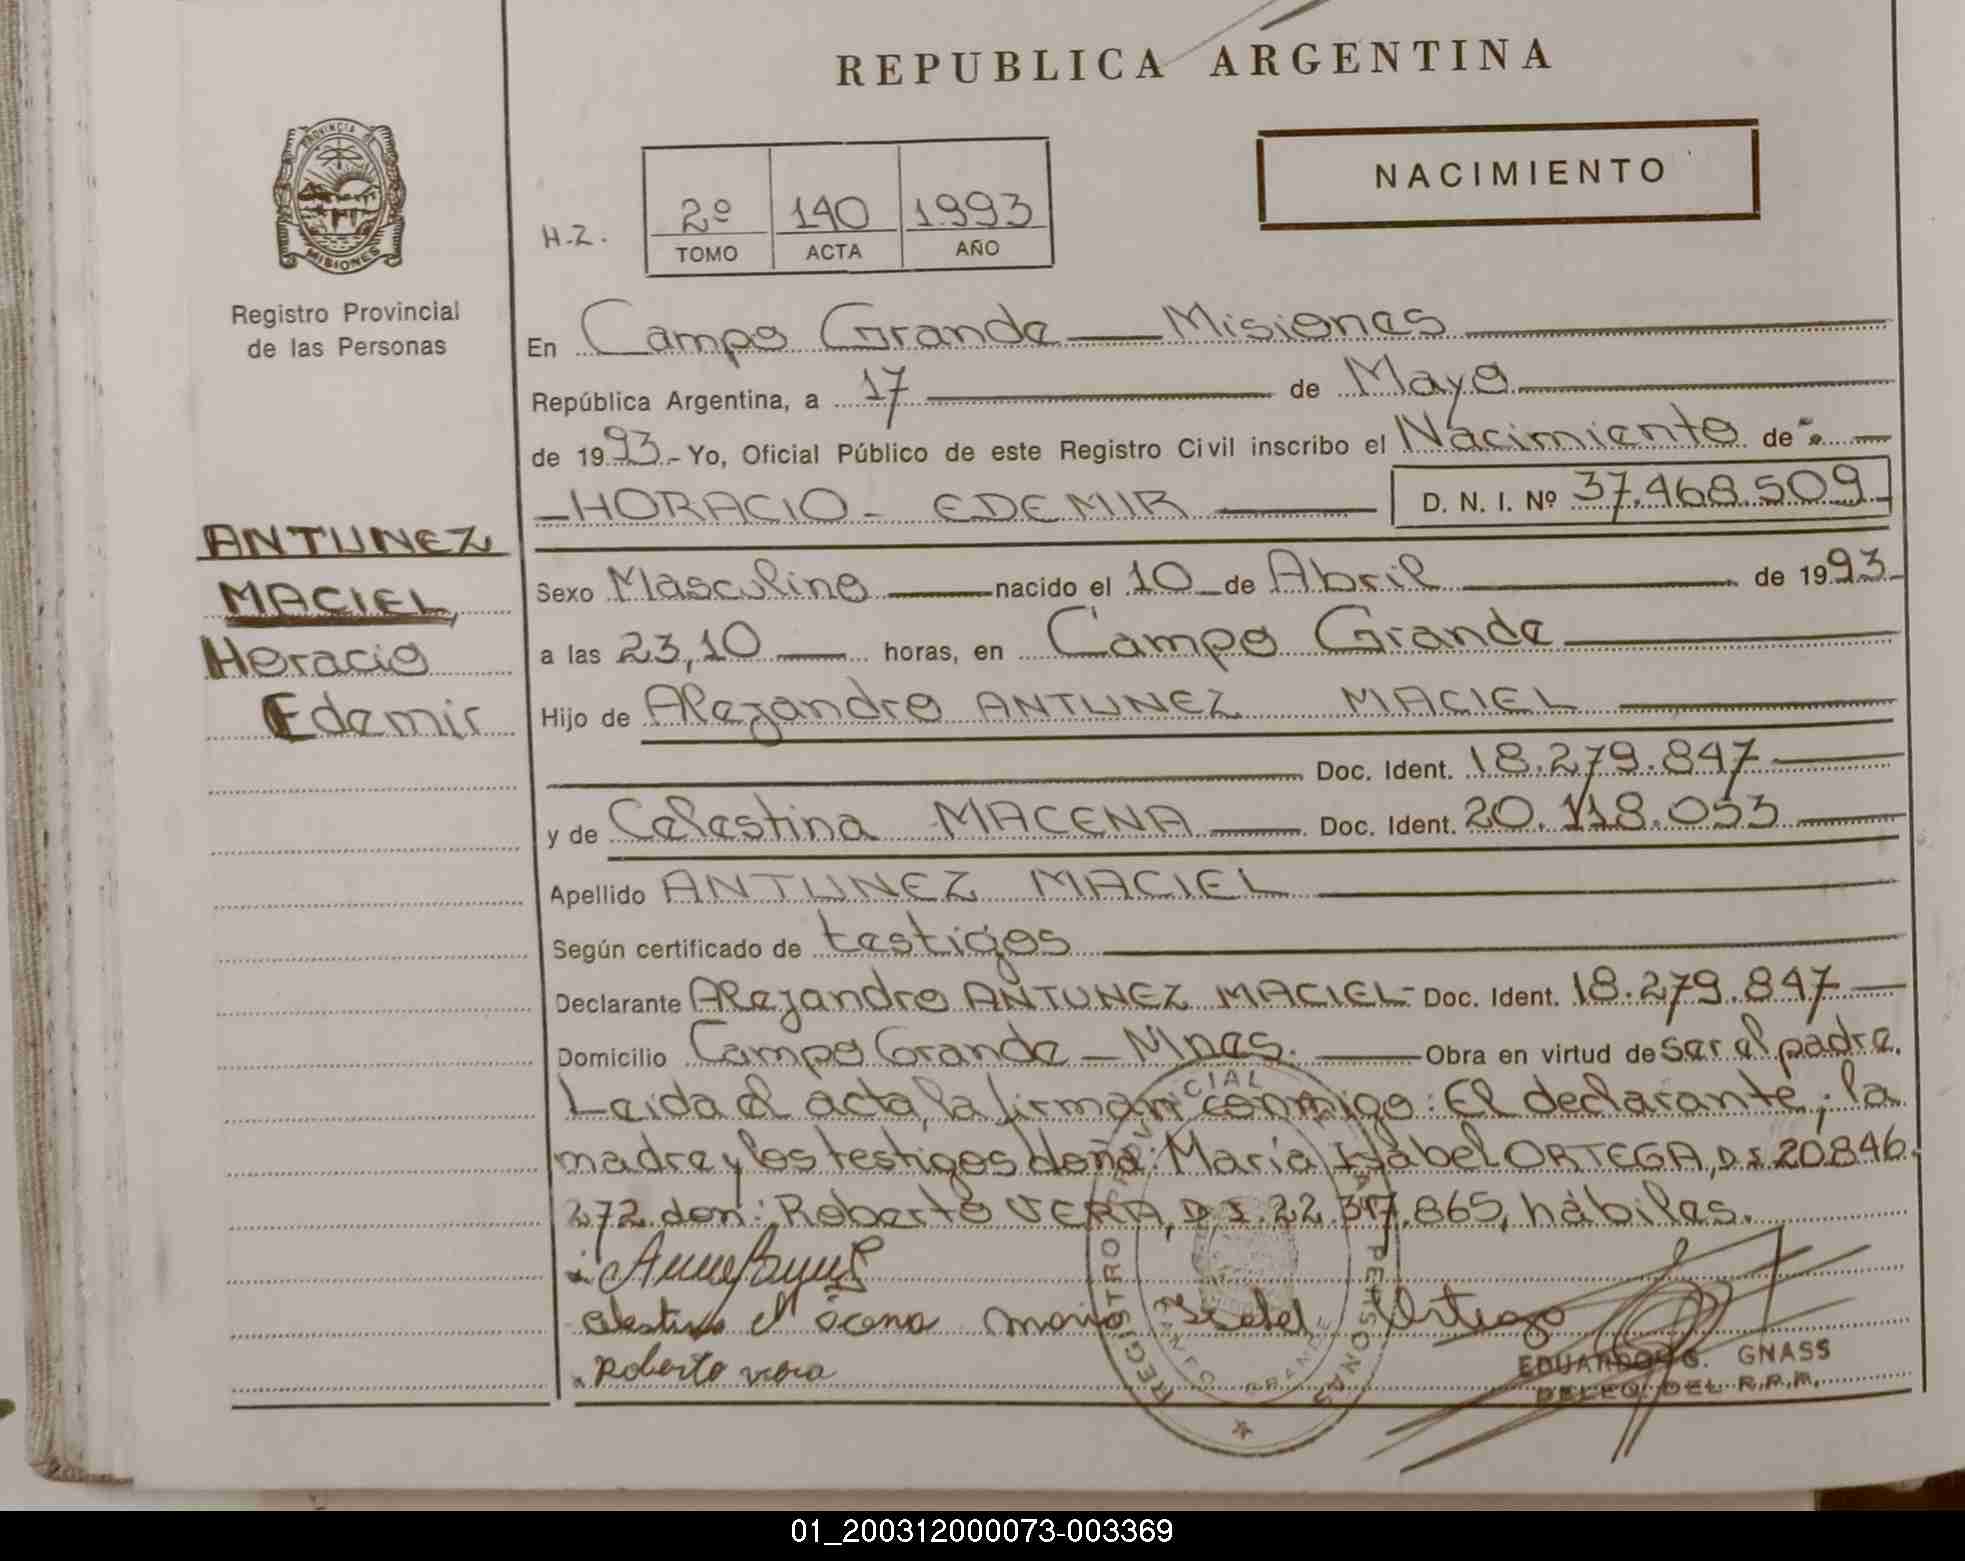 REPUBLICA ARGENTINA
NACIMIENTO
PROVINCIA DE
MISIONES
Registro Provincial
de las Personas
H.Z.
2º 140 1993
TOMO ACTA AÑO
En Campo Grande — Misiones
República Argentina, a 17 de Mayo
de 1993.- Yo, Oficial Público de este Registro Civil inscribo el Nacimiento de
- HORACIO - EDEMIR — D. N. I. Nº 37.468.509
ANTUNEZ
MACIEL,
Horacio
Edemir
Sexo Masculino — nacido el 10 de Abril de 1993
a las 23,10 horas, en Campo Grande
Hijo de Alejandro ANTUNEZ MACIEL
Doc. Ident. 18.279.847
y de Celestina MACENA Doc. Ident. 20.118.053
Apellido ANTUNEZ MACIEL
Según certificado de testigos
Declarante Alejandro ANTUNEZ MACIEL - Doc. Ident. 18.279.847
Domicilio Campo Grande - Mnes. Obra en virtud de ser el padre.
Leida el acta, la firman conmigo: El declarante; la
madre y los testigos doña: María Isabel ORTEGA, D.I. 20.846.
272 don: Roberto VERA, D.I. 22.317.865, hábiles.
María Isabel Ortega
Roberto vera
REGISTRO PROVINCIAL PERSONAS
CAMPO GRANDE
EDUARDO G. GNASS
DELEG. DEL R.P.P.
01_200312000073-003369